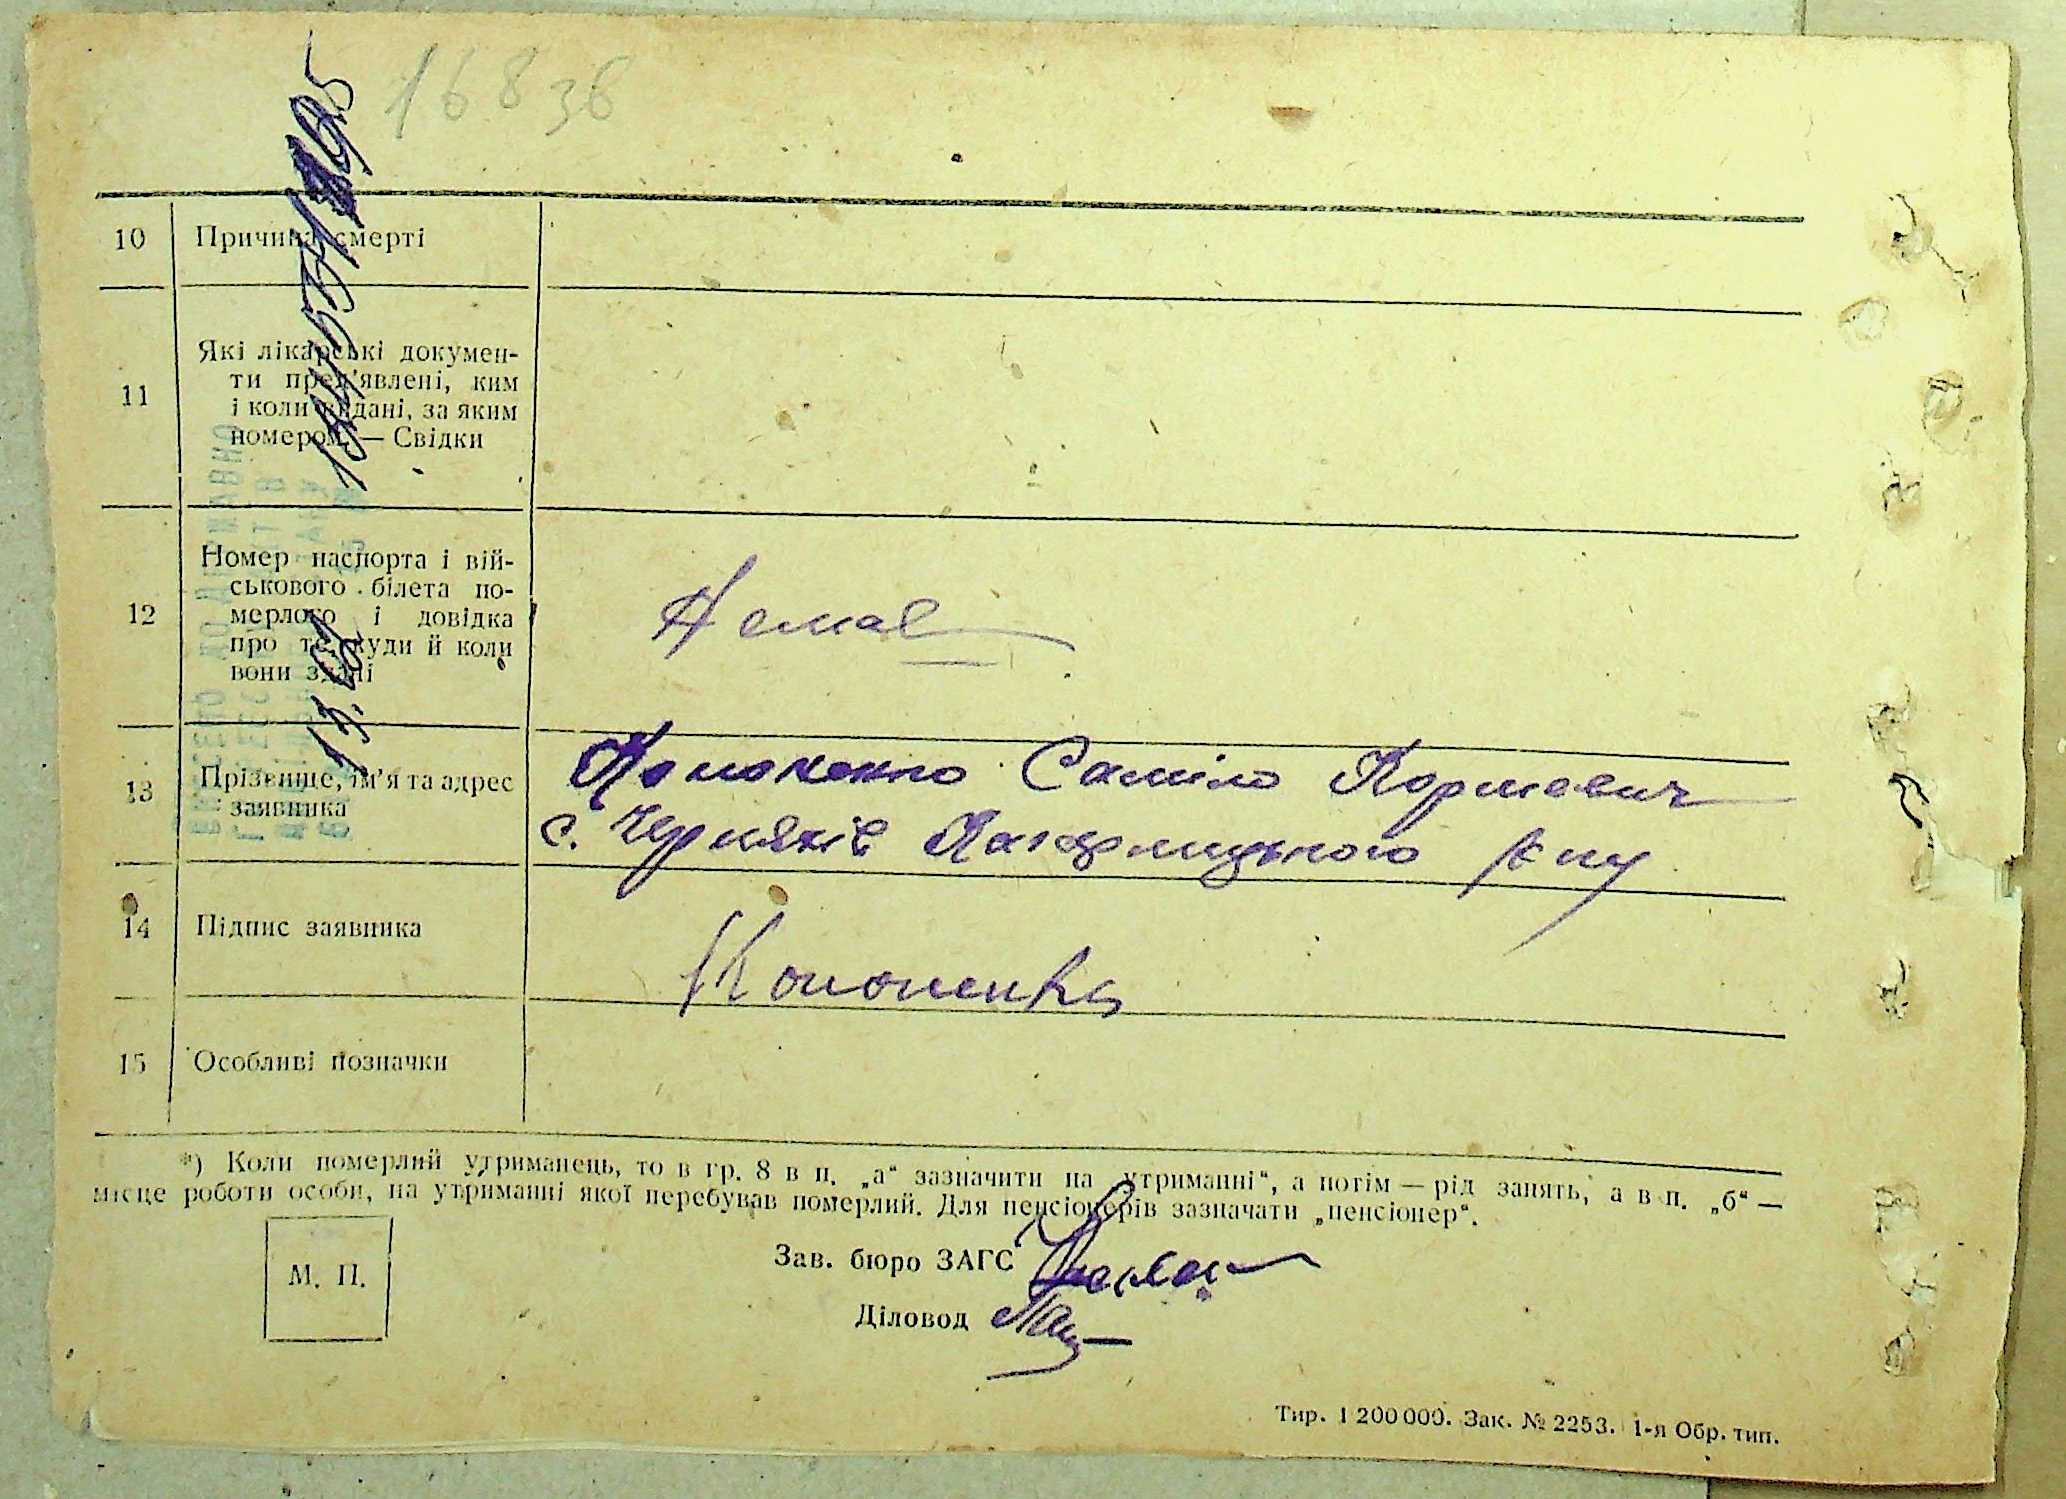 16836
10 Причина смерті
11 Які лікарські докумен-
ти пред'явлені, ким
і коли видані, за яким
номером. — Свідки
12 Номер паспорта і вій-
ськового білета по-
мерлого і довідка
про те, куди й коли
вони здані
Немає
13 Прізвище, ім'я та адрес
заявника
Кононенко Саміло
с. Черняхів Кагарлицького р-ну
14 Підпис заявника
Кононенко
15 Особливі позначки
*) Коли померлий утриманець, то в гр. 8 в п. „а“ зазначити на утриманні“, а потім — рід занять, а в п. „б“ —
місце роботи особи, на утриманні якої перебував померлий. Для пенсіонерів зазначати „пенсіонер“.
М. П.
Зав. бюро ЗАГС
Діловод
Тир. 1 200 000. Зак. № 2253. 1-я Обр. тип.